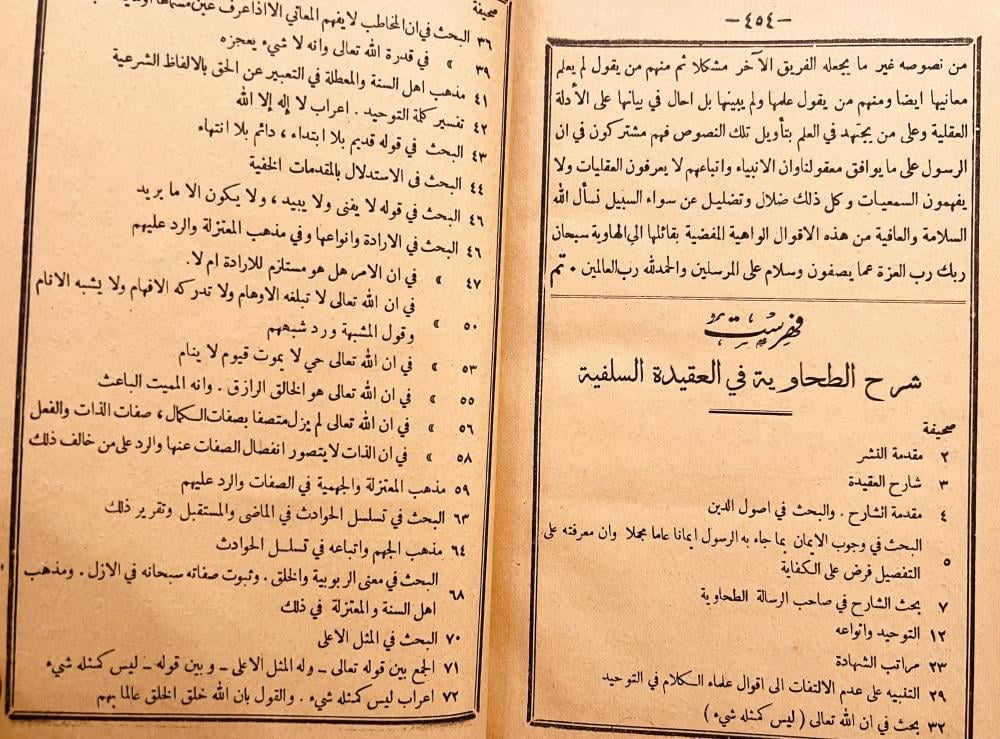 — ٤٥٤ —
من نصوصه غير ما يجعله الفريق الآخر مشكلا ثم منهم من يقول لم يعلم
معانيها ايضا ومنهم من يقول علمها ولم يبينها بل احال في بيانها على الأدلة
العقلية وعلى من يجتهد في العلم بتأويل تلك النصوص فهم مشتركون في ان
الرسول على ما يوافق معقولنا وان الانبياء واتباعهم لا يعرفون العقليات ولا
يفهمون السمعيات وكل ذلك ضلال وتضليل عن سواء السبيل نسأل الله
السلامة والعافية من هذه الاقوال الواهية المفضية بقائلها الى الهاوية سبحان
ربك رب العزة عما يصفون وسلام على المرسلين والحمدلله رب العالمين ٠ تم
فهرست
شرح الطحاوية في العقيدة السلفية
صحيفة
٢ مقدمة النشر
٣ شارح العقيدة
٤ مقدمة الشارح . والبحث في اصول الدين
٥ البحث في وجوب الايمان بما جاء به الرسول ايمانا عاما مجملا وان معرفته على
التفصيل فرض على الكفاية
٧ بحث الشارح في صاحب الرسالة الطحاوية
١٢ التوحيد وانواعه
٢٣ مراتب الشهادة
٢٩ التنبيه على عدم الالتفات الى اقوال علماء الكلام في التوحيد
٣٢ بحث في ان الله تعالى ( ليس كمثله شيء )
صحيفة
٣٦ البحث في ان المخاطب لا يفهم المعاني الا اذا عرف عين مسماها
٣٩ » في قدرة الله تعالى وانه لا شيء يعجزه
٤١ مذهب اهل السنة والمعطلة في التعبير عن الحق بالالفاظ الشرعية
٤٢ تفسير كلمة التوحيد . اعراب لا إله إلا الله
٤٣ البحث في قوله قديم بلا ابتداء ، دائم بلا انتهاء
٤٤ البحث فى الاستدلال بالمقدمات الخفية
٤٦ البحث في قوله لا يفنى ولا يبيد ، ولا يكون الا ما يريد
٤٦ البحث في الارادة وانواعها وفي مذهب المعتزلة والرد عليهم
٤٧ » في ان الامر هل هو مستلزم للارادة ام لا.
٥٠ » في ان الله تعالى لا تبلغه الاوهام ولا تدركه الافهام ولا يشبه الانام
وقول المشبهة ورد شبههم
٥٣ » في ان الله تعالى حي لا يموت قيوم لا ينام
٥٥ » في ان الله تعالى هو الخالق الرازق . وانه المميت الباعث
٥٦ » في ان الله تعالى لم يزل متصفا بصفات الكمال ، صفات الذات والفعل
٥٨ » في ان الذات لا يتصور انفصال الصفات عنها والرد على من خالف ذلك
٥٩ مذهب المعتزلة والجهمية في الصفات والرد عليهم
٦٣ البحث في تسلسل الحوادث في الماضى والمستقبل وتقرير ذلك
٦٤ مذهب الجهم واتباعه في تسلسل الحوادث
٦٨ البحث في معنى الربوبية والخلق . وثبوت صفاته سبحانه في الازل . ومذهب
اهل السنة والمعتزلة في ذلك
٧٠ البحث في المثل الاعلى
٧١ الجمع بين قوله تعالى ــ وله المثل الاعلى ــ وبين قوله ــ ليس كمثله شيء
٧٢ اعراب ليس كمثله شيء . والقول بان الله خلق الخلق عالما بهم